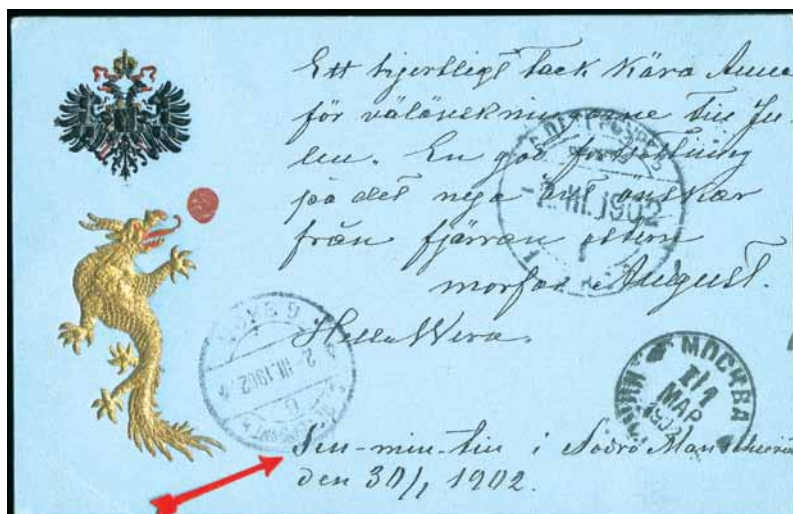 Ett hjertligt tack Kära Anna
för välönskningarne till Ju-
len. En god fortsättning
på det nya året önskar
från fjärran östern
morfar August.
Helsa Wera.
Sin-min-tin i Södra Manschuriet
den 30/1 1902.
-2.III.1902
2-III.1902
МОСКВА
I/1
МАР
1902